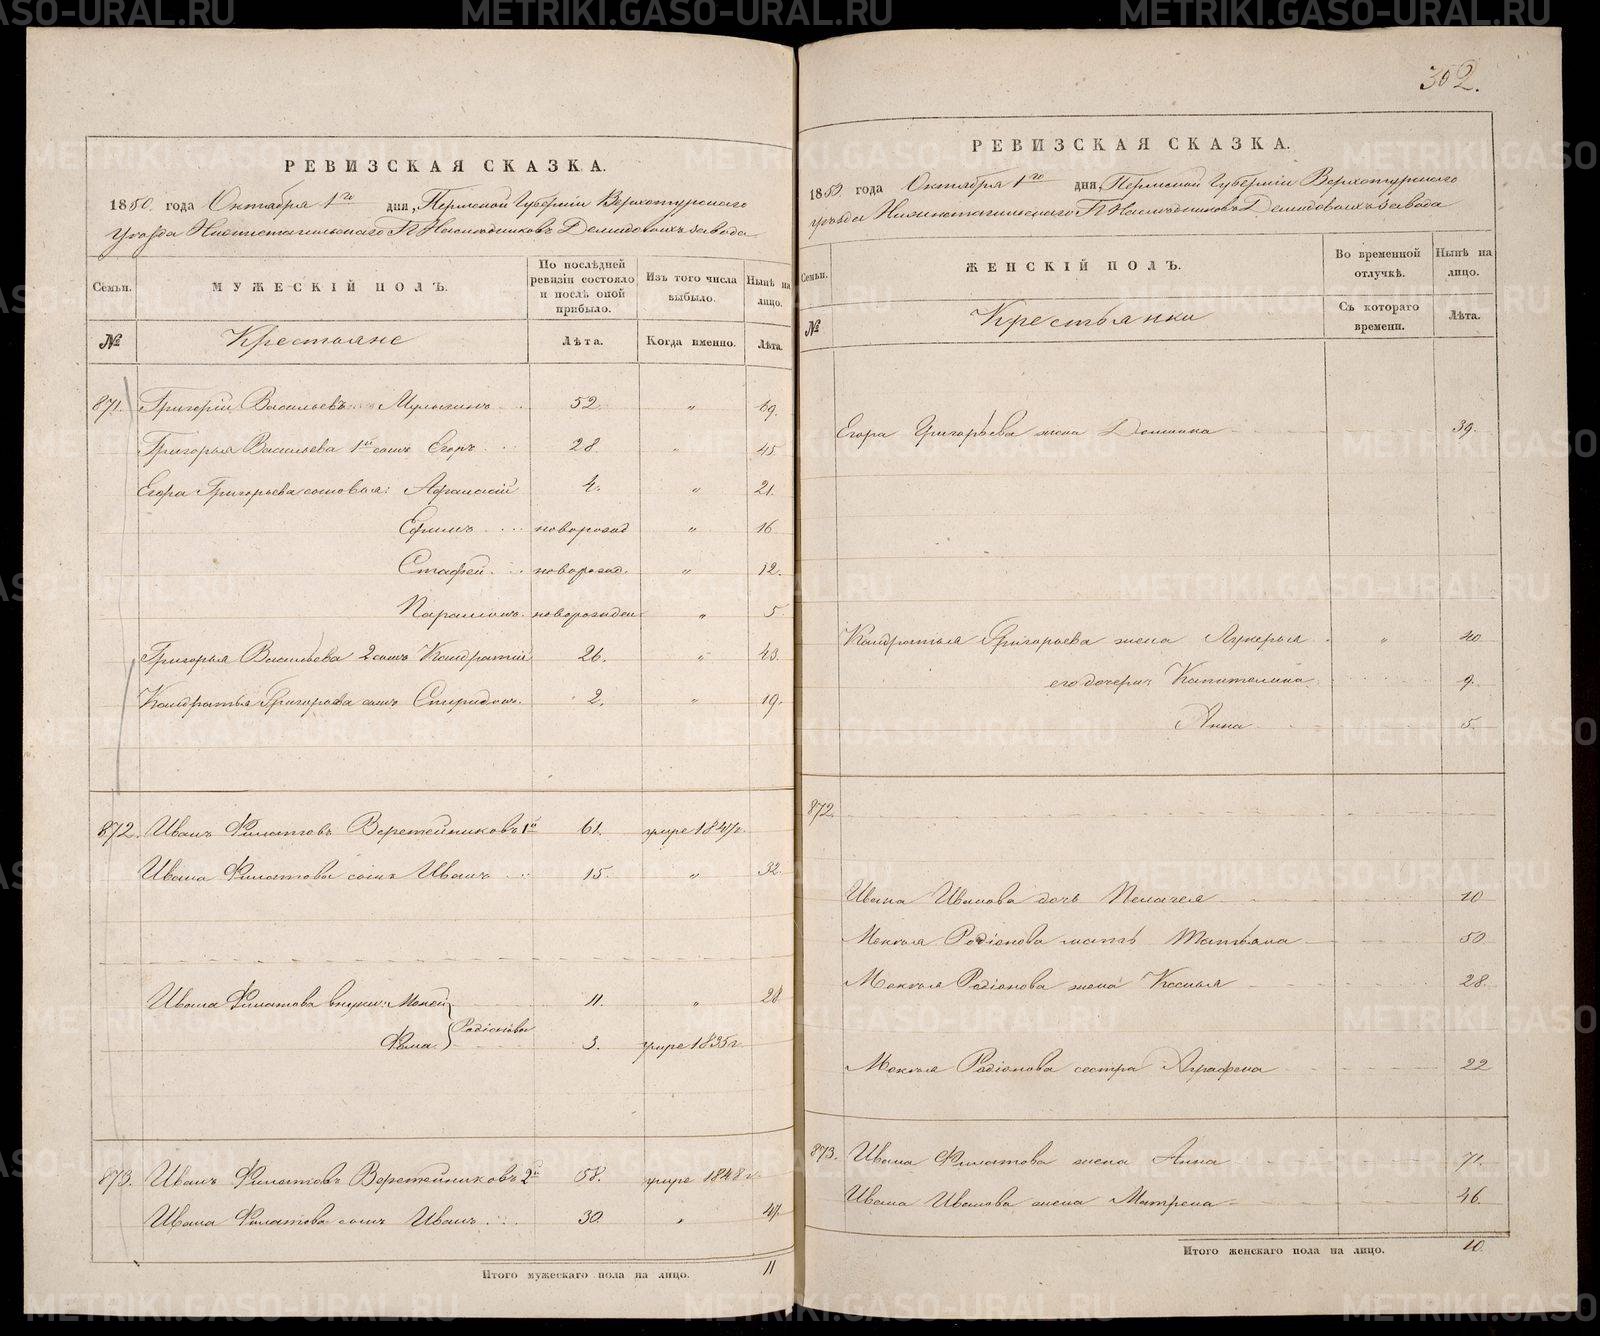 РЕВИЗСКАЯ СКАЗКА.
1850. года Октября 1го дня, Пермской Губерніи Верхотурскаго
уѣзда Нижнетагильскаго Г. Наслѣдниковъ Демидовыхъ завода
Семьи.
МУЖЕСКІЙ ПОЛЪ.
По послѣдней ревизіи состояло и послѣ оной прибыло.
Изъ того числа выбыло.
Нынѣ на лицо.
№
Крестьяне
Лѣта.
Когда именно.
Лѣта.
871. Григорій Васильевъ 52. " 69.
Григорья Васильева 1й сынъ Егоръ 28 " 45
Егора Григорьева сыновья: Афанасій 4. " 21.
Ефимъ новорожд " 16
Стафей новорожд. " 12.
Парамонъ новорожден " 5
Григорья Васильева 2 сынъ Кондратій 26. " 43.
Кондратья Григорьева сынъ Спиридонъ. 2. " 19.
872. Иванъ Филатовъ Веретейниковъ 1й 61. умре 1847г.
Ивана Филатова сынъ Иванъ 15. " 32.
Ивана Филатова внуки: Мокей 11. " 28
Родіоновы
Фома 3. умре 1835г
873. Иванъ Филатовъ Веретейниковъ 2й 58. умре 1848г.
Ивана Филатова сынъ Иванъ 30. " 47.
Итого мужескаго пола на лицо. 11
302.
РЕВИЗСКАЯ СКАЗКА.
1850 года Октября 1го дня, Пермской Губерніи Верхотурскаго
уѣзда Нижнетагильскаго Г. Наслѣдниковъ Демидовыхъ завода
Семьи.
ЖЕНСКІЙ ПОЛЪ.
Во временной отлучкѣ.
Нынѣ на лицо.
№
Крестьянки
Съ котораго времени.
Лѣта.
Егора Григорьева жена Домника 39.
Кондратья Григорьева жена Лукерья " 40
его дочери: Капитолина 9.
Анна 5.
872.
Ивана Иванова дочь Пелагея 10
Мокея Родіонова мать Татьяна 50
Мокея Родіонова жена Ксенья 28.
Мокея Родіонова сестра Аграфена 22
873. Ивана Филатова жена Анна 71.
Ивана Иванова жена Матрена 46.
Итого женскаго пола на лицо. 10.
METRIKI.GASO-URAL.RU